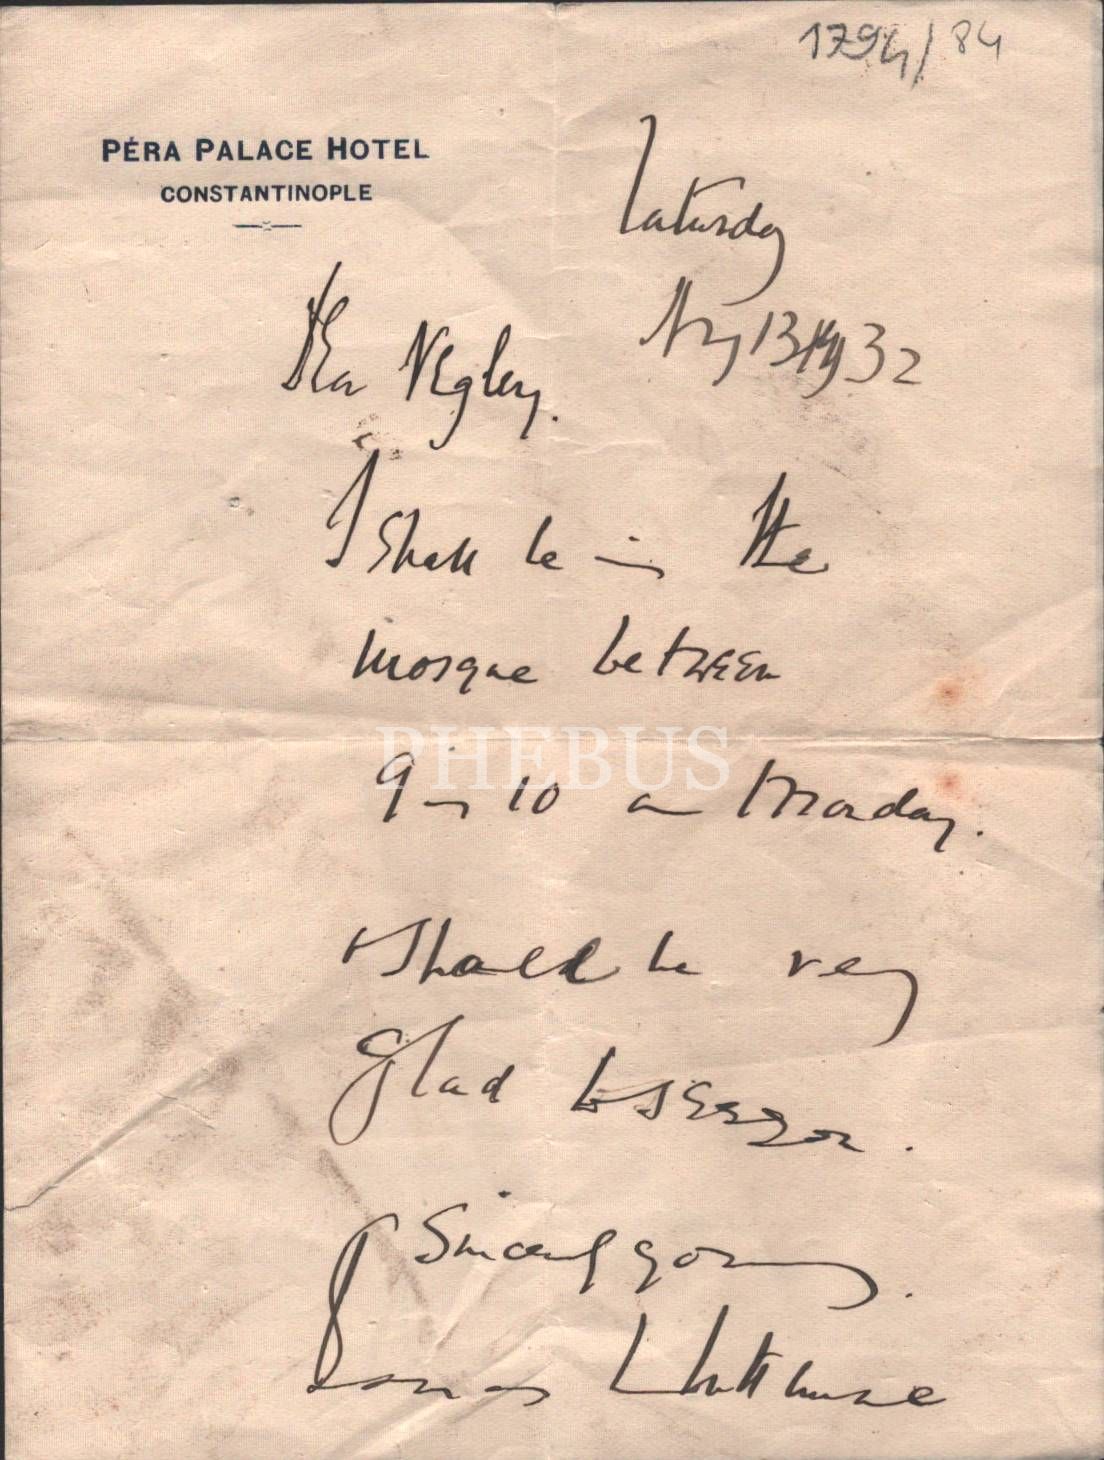 1794/84
PÉRA PALACE HOTEL
CONSTANTINOPLE
Saturday
13 1932
Dear Negley.
I shall be in the
mosque between
PHEBUS
9 10 on Monday.
& shall be very
glad to see you.
Sincerely yours.
Thomas Whittemore